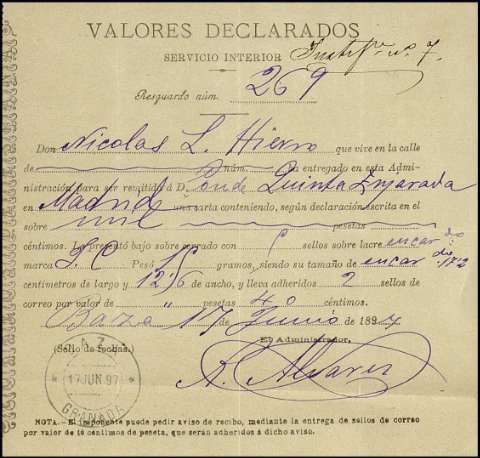 VALORES DECLARADOS
SERVICIO INTERIOR
nº 7.
Resguardo núm. 269
Don Nicolas L. Hierro que vive en la calle
de núm. ha entregado en esta Admi-
nistración para ser remitido á D. Conde Quinta Enjarada
en Madrid una carta conteniendo, según declaración escrita en el
sobre mil pesetas
céntimos. La presentó bajo sobre cerrado con sellos sobre lacre encarnado
marca Pesó gramos, siendo su tamaño de
centímetros de largo y de ancho, y lleva adheridos 2 sellos de
correo por valor de " pesetas 40 céntimos.
Baza 17 de Junio de 1897
(Sello de fechas.) El Administrador,
BAZA
17 JUN 97
GRANADA
A. Alvarez
NOTA.—El imponente puede pedir aviso de recibo, mediante la entrega de sellos de correo
por valor de 10 céntimos de peseta, que serán adheridos á dicho aviso.